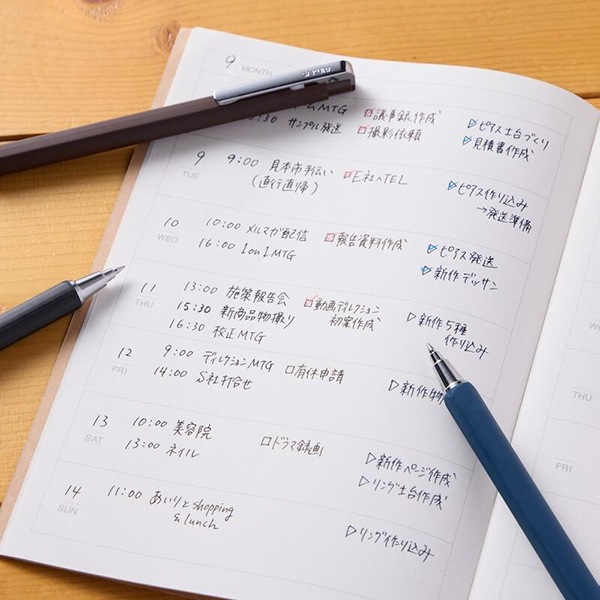 9 MONTH
SAKURA
MTG □議事録作成 ▷ピアス土台づくり
:30 サンプル発送 □撮影依頼 ▷見積書作成
9 TUE 9:00 見本市手伝い □E社へTEL ▷ピアス作り込み
(直行直帰) →発送準備
10 WED 10:00 メルマガ配信 □報告資料作成 ▷ピアス発送
16:00 1on1MTG ▷新作デッサン
11 THU 13:00 施策報告会 □動画ディレクション ▷新作5種
15:30 新商品物撮り 初案作成 作り込み
16:30 校正MTG
12 FRI 9:00 ディレクションMTG □有休申請 ▷新作物
14:00 S社打合せ
13 SAT 10:00 美容院 □ドラマ録画 ▷新作ページ作成
13:00 ネイル ▷リング土台作成
14 SUN 11:00 あいりとshopping ▷リング作り込み
& lunch
THU
FRI